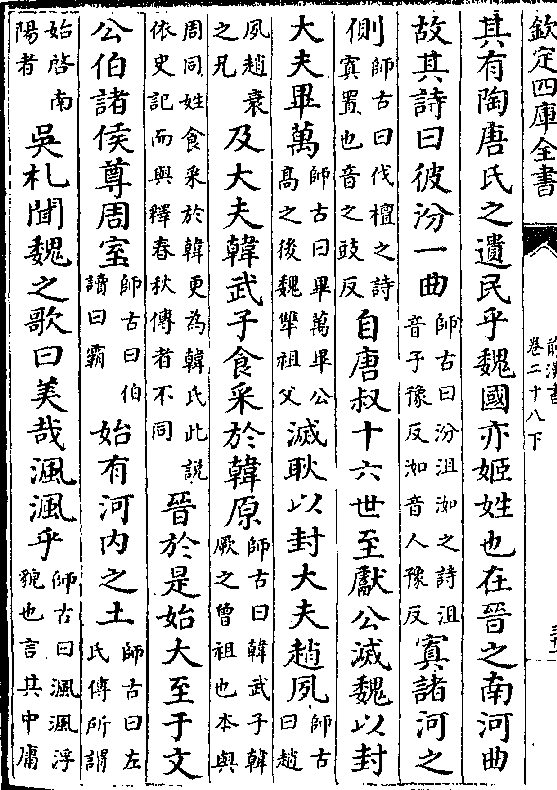 欽定四庫全書
前漢書
卷二十八下
其有陶唐氏之遺民乎魏國亦姬姓也在晉之南河曲
故其詩曰彼汾一曲師古曰汾沮洳之詩沮音子豫反洳音人豫反寘諸河之
側師古曰伐檀之詩寘置也音之豉反自唐叔十六世至獻公滅魏以封
大夫畢萬師古曰畢萬畢公髙之後魏犨祖父滅耿以封大夫趙夙師古曰趙
夙趙衰之兄及大夫韓武子食采於韓原師古曰韓武子韓厥之曾祖也本與
周同姓食采於韓更為韓氏此說依史記而與釋春秋傳者不同晉於是始大至于文
公伯諸侯尊周室師古曰伯讀曰霸始有河內之土師古曰左氏傳所謂
始啓南陽者吳札聞魏之歌曰美哉渢渢乎師古曰渢渢浮貌也言其中庸